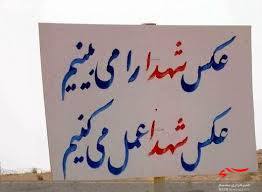 عکس شهدا را می بینیم
عکس شهدا عمل می کنیم